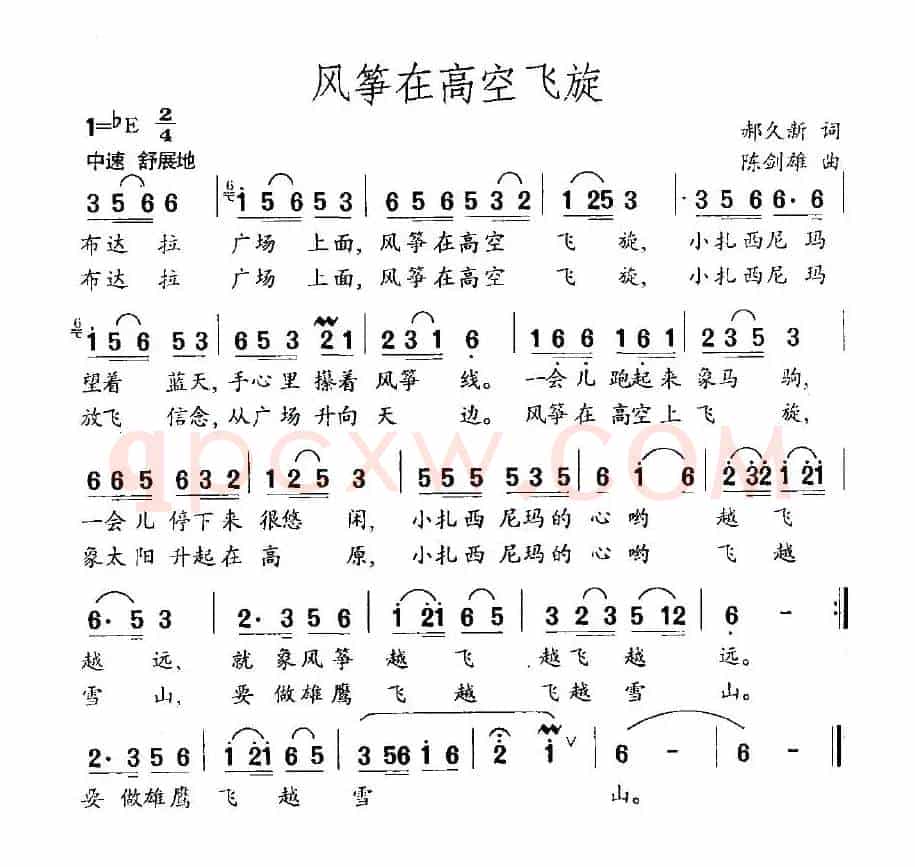 风筝在高空飞旋
1=♭E 2/4
郝久新 词
中速 舒展地
陈剑雄 曲
3 5 6 6 | 1 5 6 5 3 | 6 5 6 5 3 2 | 1 25 3 | 3 5 6 6· 6
布达 拉 广场 上面,风筝在高空 飞 旋, 小扎西尼玛
布达 拉 广场 上面,风筝在高空 飞 旋, 小扎西尼玛
1 5 6 5 3 | 6 5 3 2 1 | 2 3 1 6 | 1 6 6 1 6 1 | 2 3 5 3
望着 蓝天,手心里 攥着 风筝 线。 一会儿 跑起来 象马 驹,
放飞 信念,从广场 升向 天 边。 风筝在 高空上 飞 旋,
qpcxw.COM
6 6 5 6 3 2 | 1 2 5 3 | 5 5 5 5 3 5 | 6 1 6 | 2 32 1 21
一会儿 停下来 很悠 闲, 小扎西 尼玛的 心 哟 越 飞
象太阳 升起在 高 原, 小扎西 尼玛的 心 哟 飞 越
6· 5 3 | 2· 3 5 6 | 1 21 6 5 | 3 2 3 5 12 | 6 - :|
越 远、 就 象风筝 越 飞 越飞 越 远。
雪 山, 要 做雄鹰 飞 越 飞越 雪 山。
2· 3 5 6 | 1 21 6 5 | 3 56 1 6 | 2 1 ∨ | 6 - | 6 - ‖
要 做雄鹰 飞 越 雪 山。